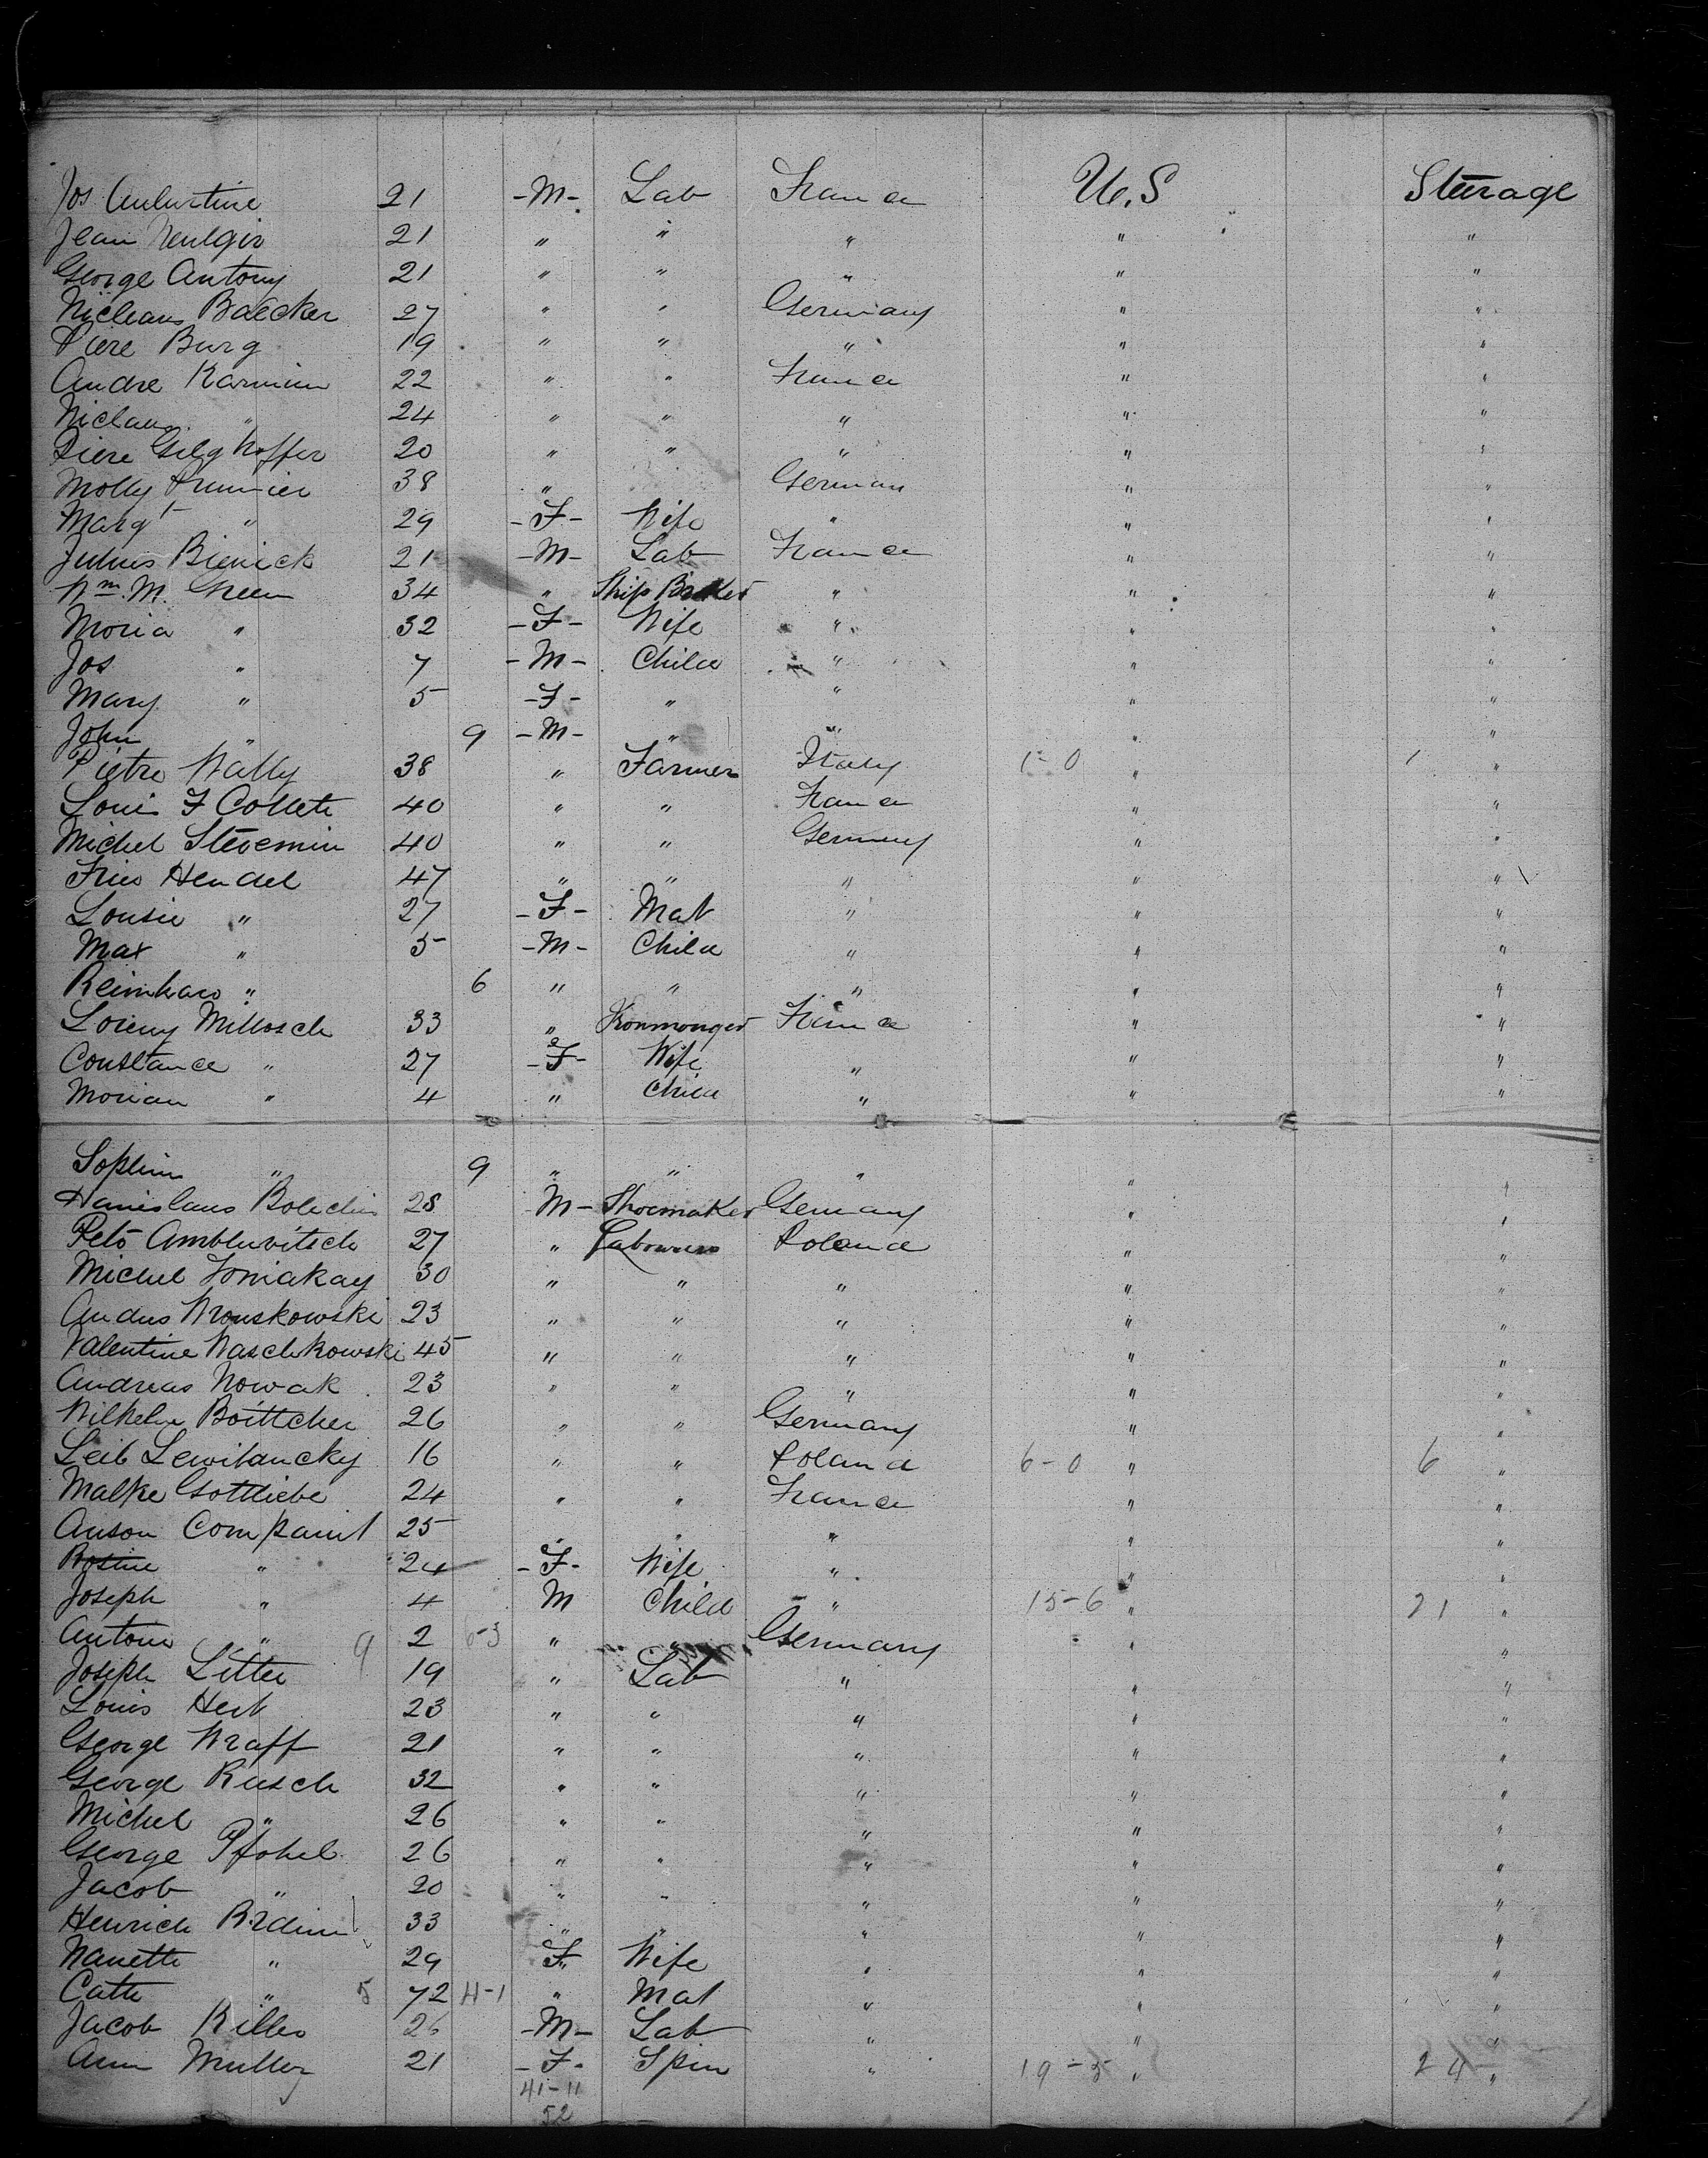 Jos 21 -M- Lab France U.S Steerage
Jean 21 " " " " "
George Antony 21 " " " " "
Niclaus Baecker 27 " " Germany " "
Piere Burg 19 " " " " "
Andre 22 " " France " "
Niclaus " 24 " " " " "
Piere Gilghoffer 20 " " " " "
Molly 38 " German " "
Margt " 29 -F- Wife " " "
Julius Bienick 21 -M- Lab France " "
Wm. M. Green 34 " Ship Broker " " "
Moria " 32 -F- Wife " " "
Jos " 7 -M- Child " " "
Mary " 5 -F- " " " "
John " 9 -M- " " " "
Pietro Wally 38 " Farmer Italy 1-0 " 1 "
Louis F Collete 40 " " France " "
Michel 40 " " Germany " "
Hendel 47 " " " " "
Lousie " 27 -F- Mat " " "
Max " 5 -M- Child " " "
" 6 " " " " "
Millosch 33 " Ironmonger France " "
Constance " 27 -F- Wife " " "
Morian " 4 " Child " " "
" 9 " " " " "
28 M- Shoemaker Germany " "
27 " Labourer Poland " "
Michel 30 " " " " "
Andus Wronskowski 23 " " " " "
Valentine Waschkowski 45 " " " " "
Andreas Nowak 23 " " " " "
Wilhelm Boittcher 26 " " Germany " "
Leib Lewitancky 16 " " Poland 6-0 " 6 "
Malke Gottliebe 24 " " France " "
Anson Compaint 25 " " " " "
Rosine " 24 -F- Wife " " "
Joseph " 4 M Child " 15-6 " 21 "
Antoine " 9 2 6-3 " " Germany " "
Joseph Litter 19 " Lab " " "
Louis Hert 23 " " " " "
George Wraff 21 " " " " "
George Rusch 32 " " " " "
Michel " 26 " " " " "
George Pfohel 26 " " " " "
Jacob " 20 " " " " "
Henrich 33 " " " " "
Nanette " 29 F Wife " " "
Cath " 5 72 4-1 " Mat " " "
Jacob Killer 26 -M- Lab " " "
Ann Muller 21 -F- Spin " 19-5 " 24 "
41-11
52